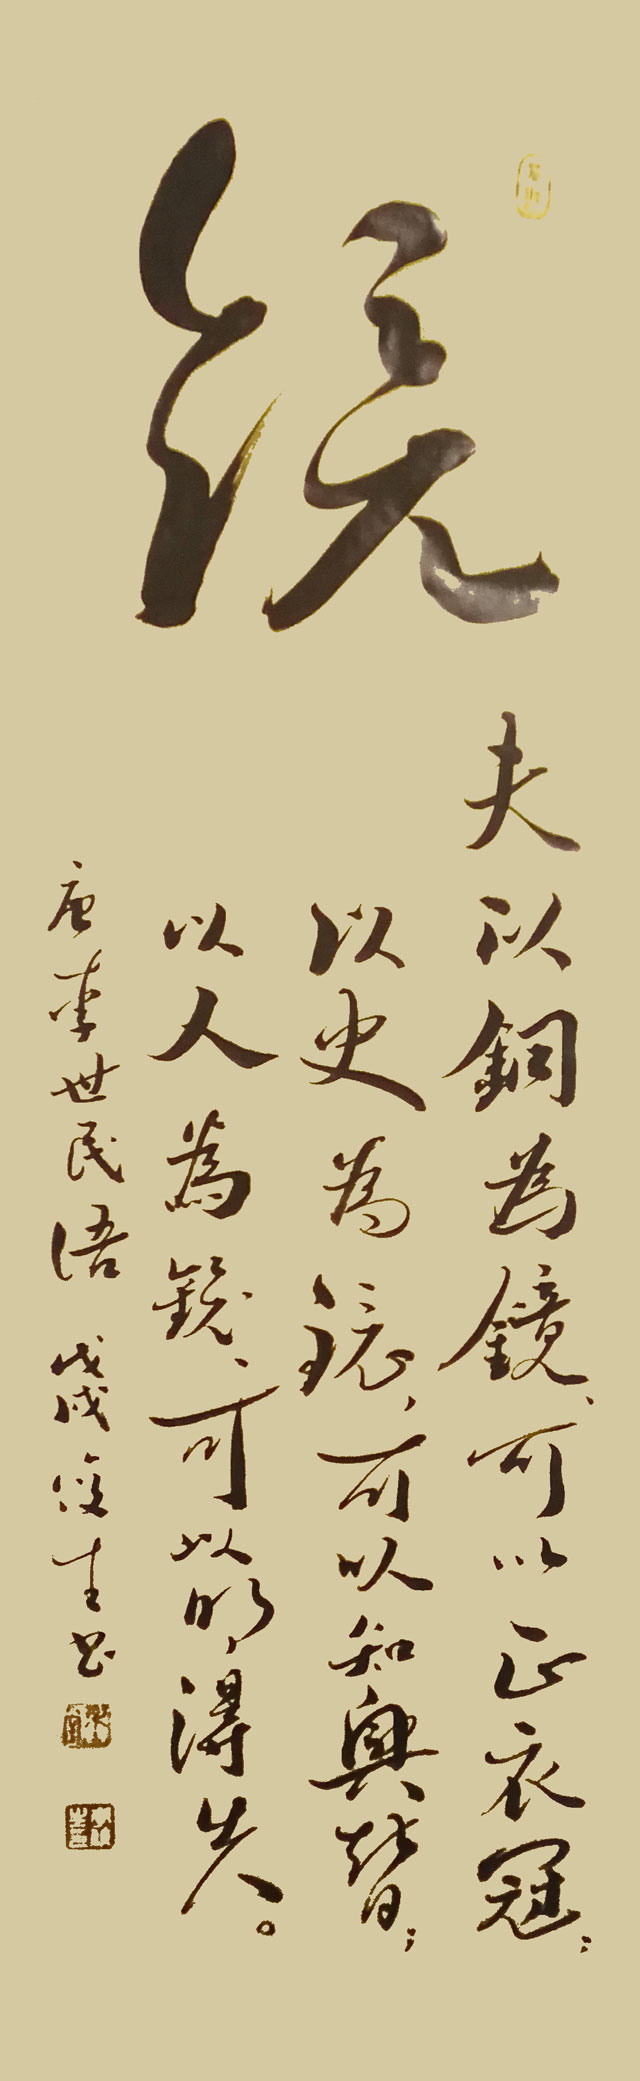 镜
夫以銅為鏡、可以正衣冠；
以史為鏡，可以知興替；
以人為鏡、可以明得失。
唐李世民語 戊戌俊生书